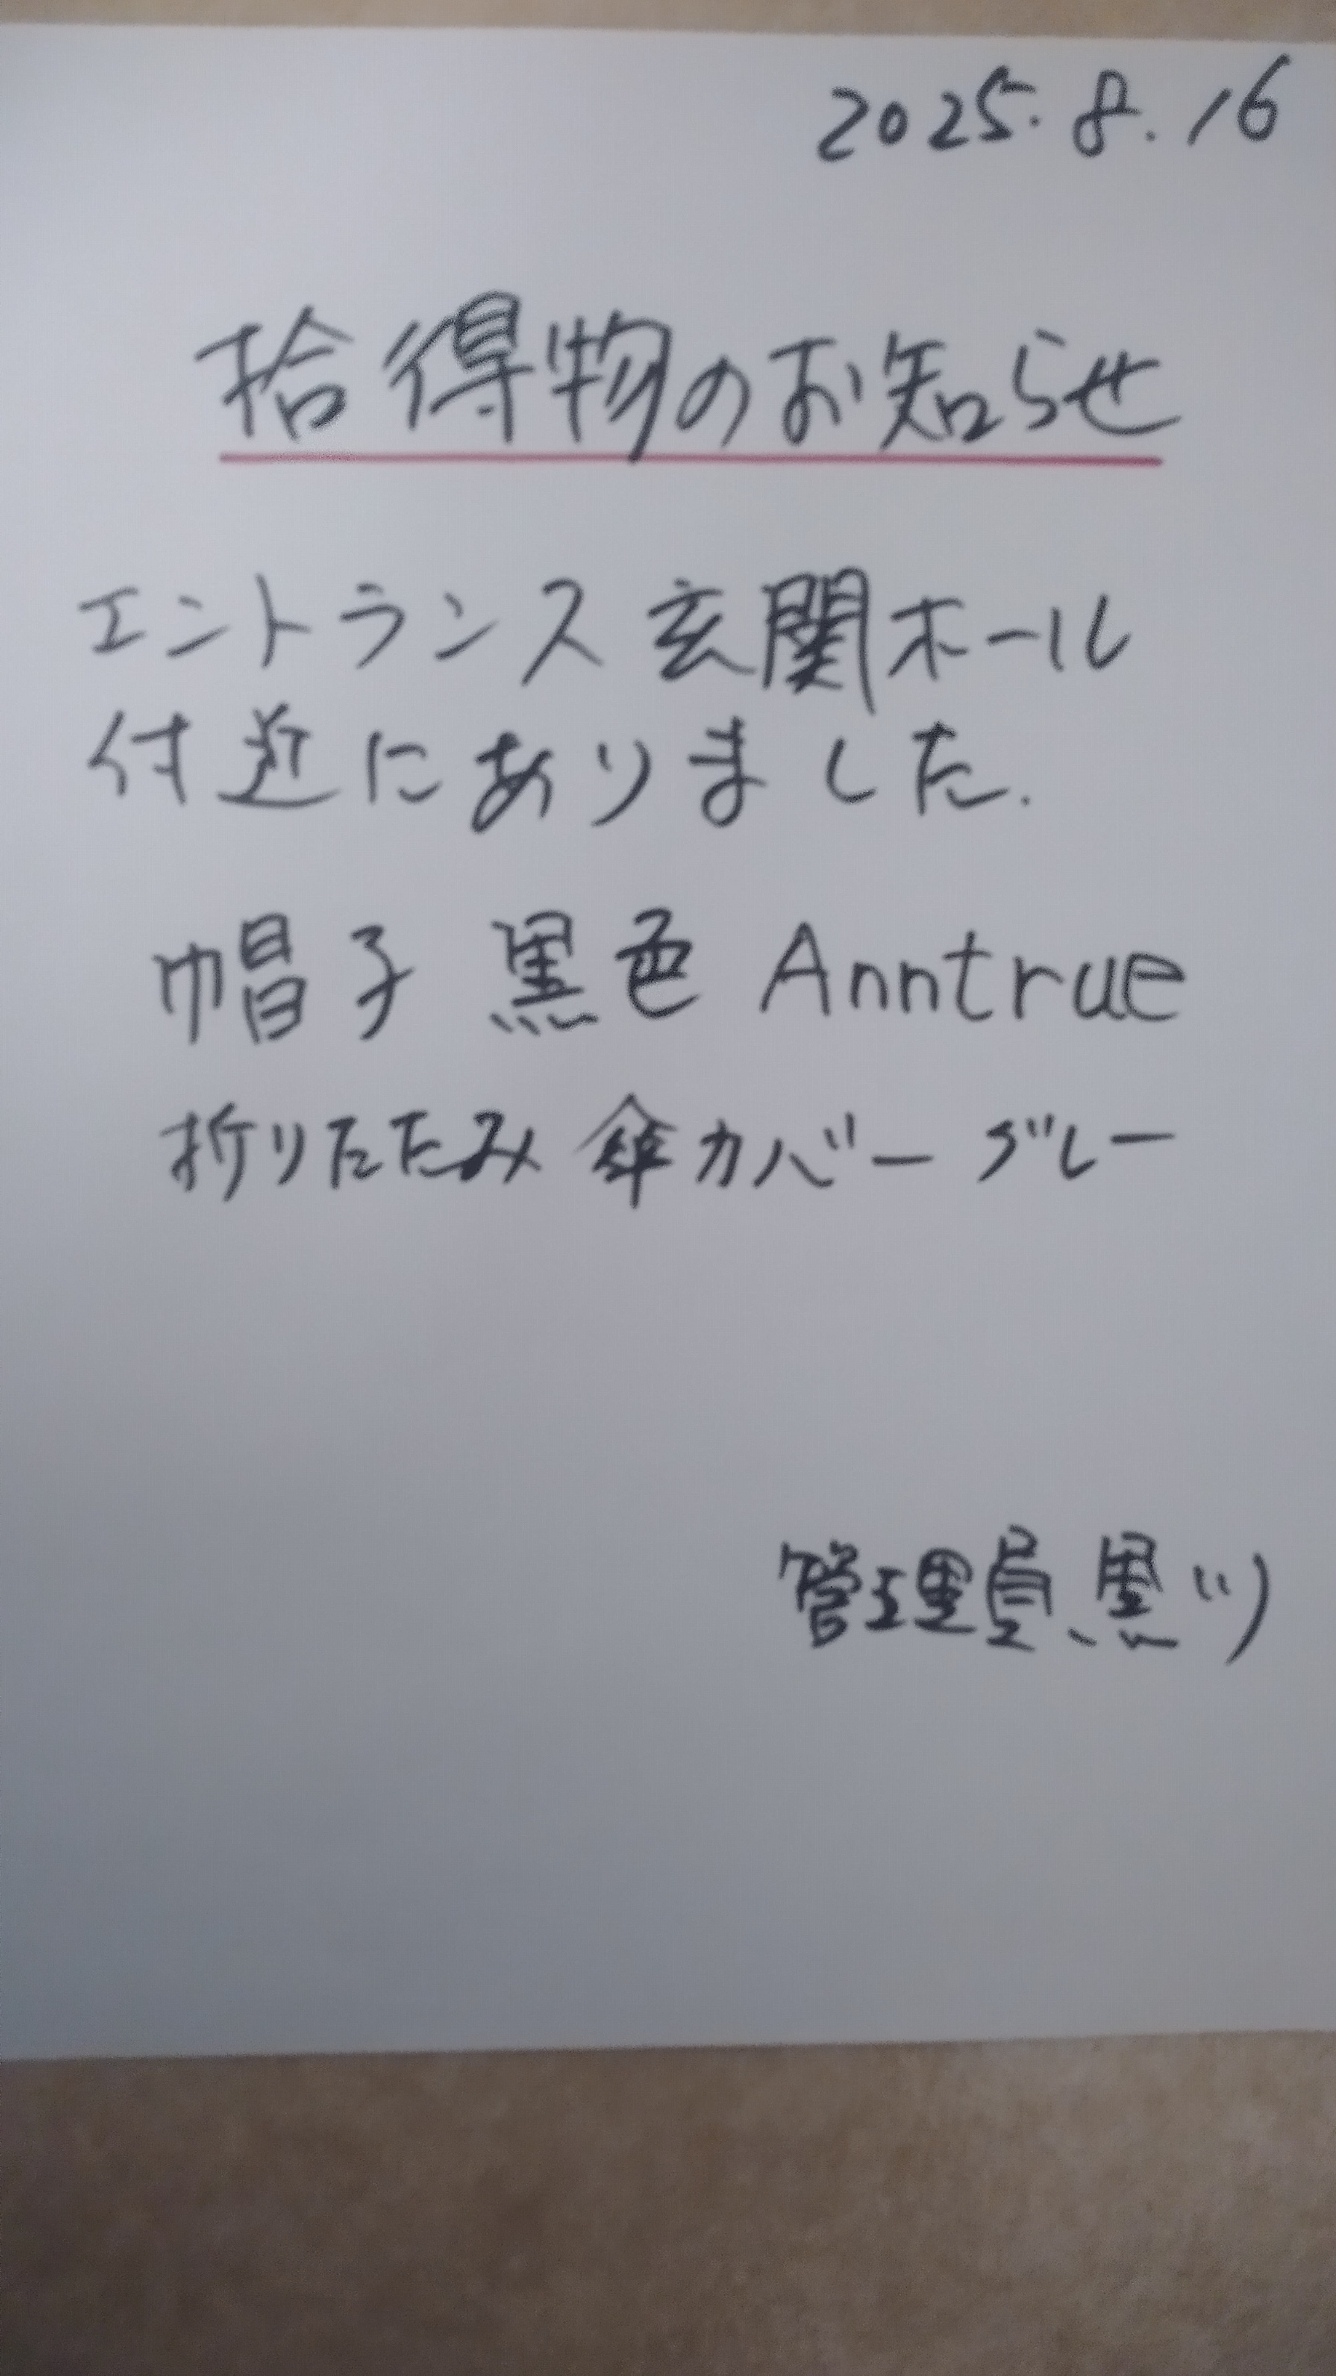 2025.8.16
拾得物のお知らせ
エントランス玄関ホール
付近にありました.
帽子 黒色 Anntrue
折りたたみ傘カバー グレー
管理員 黒川